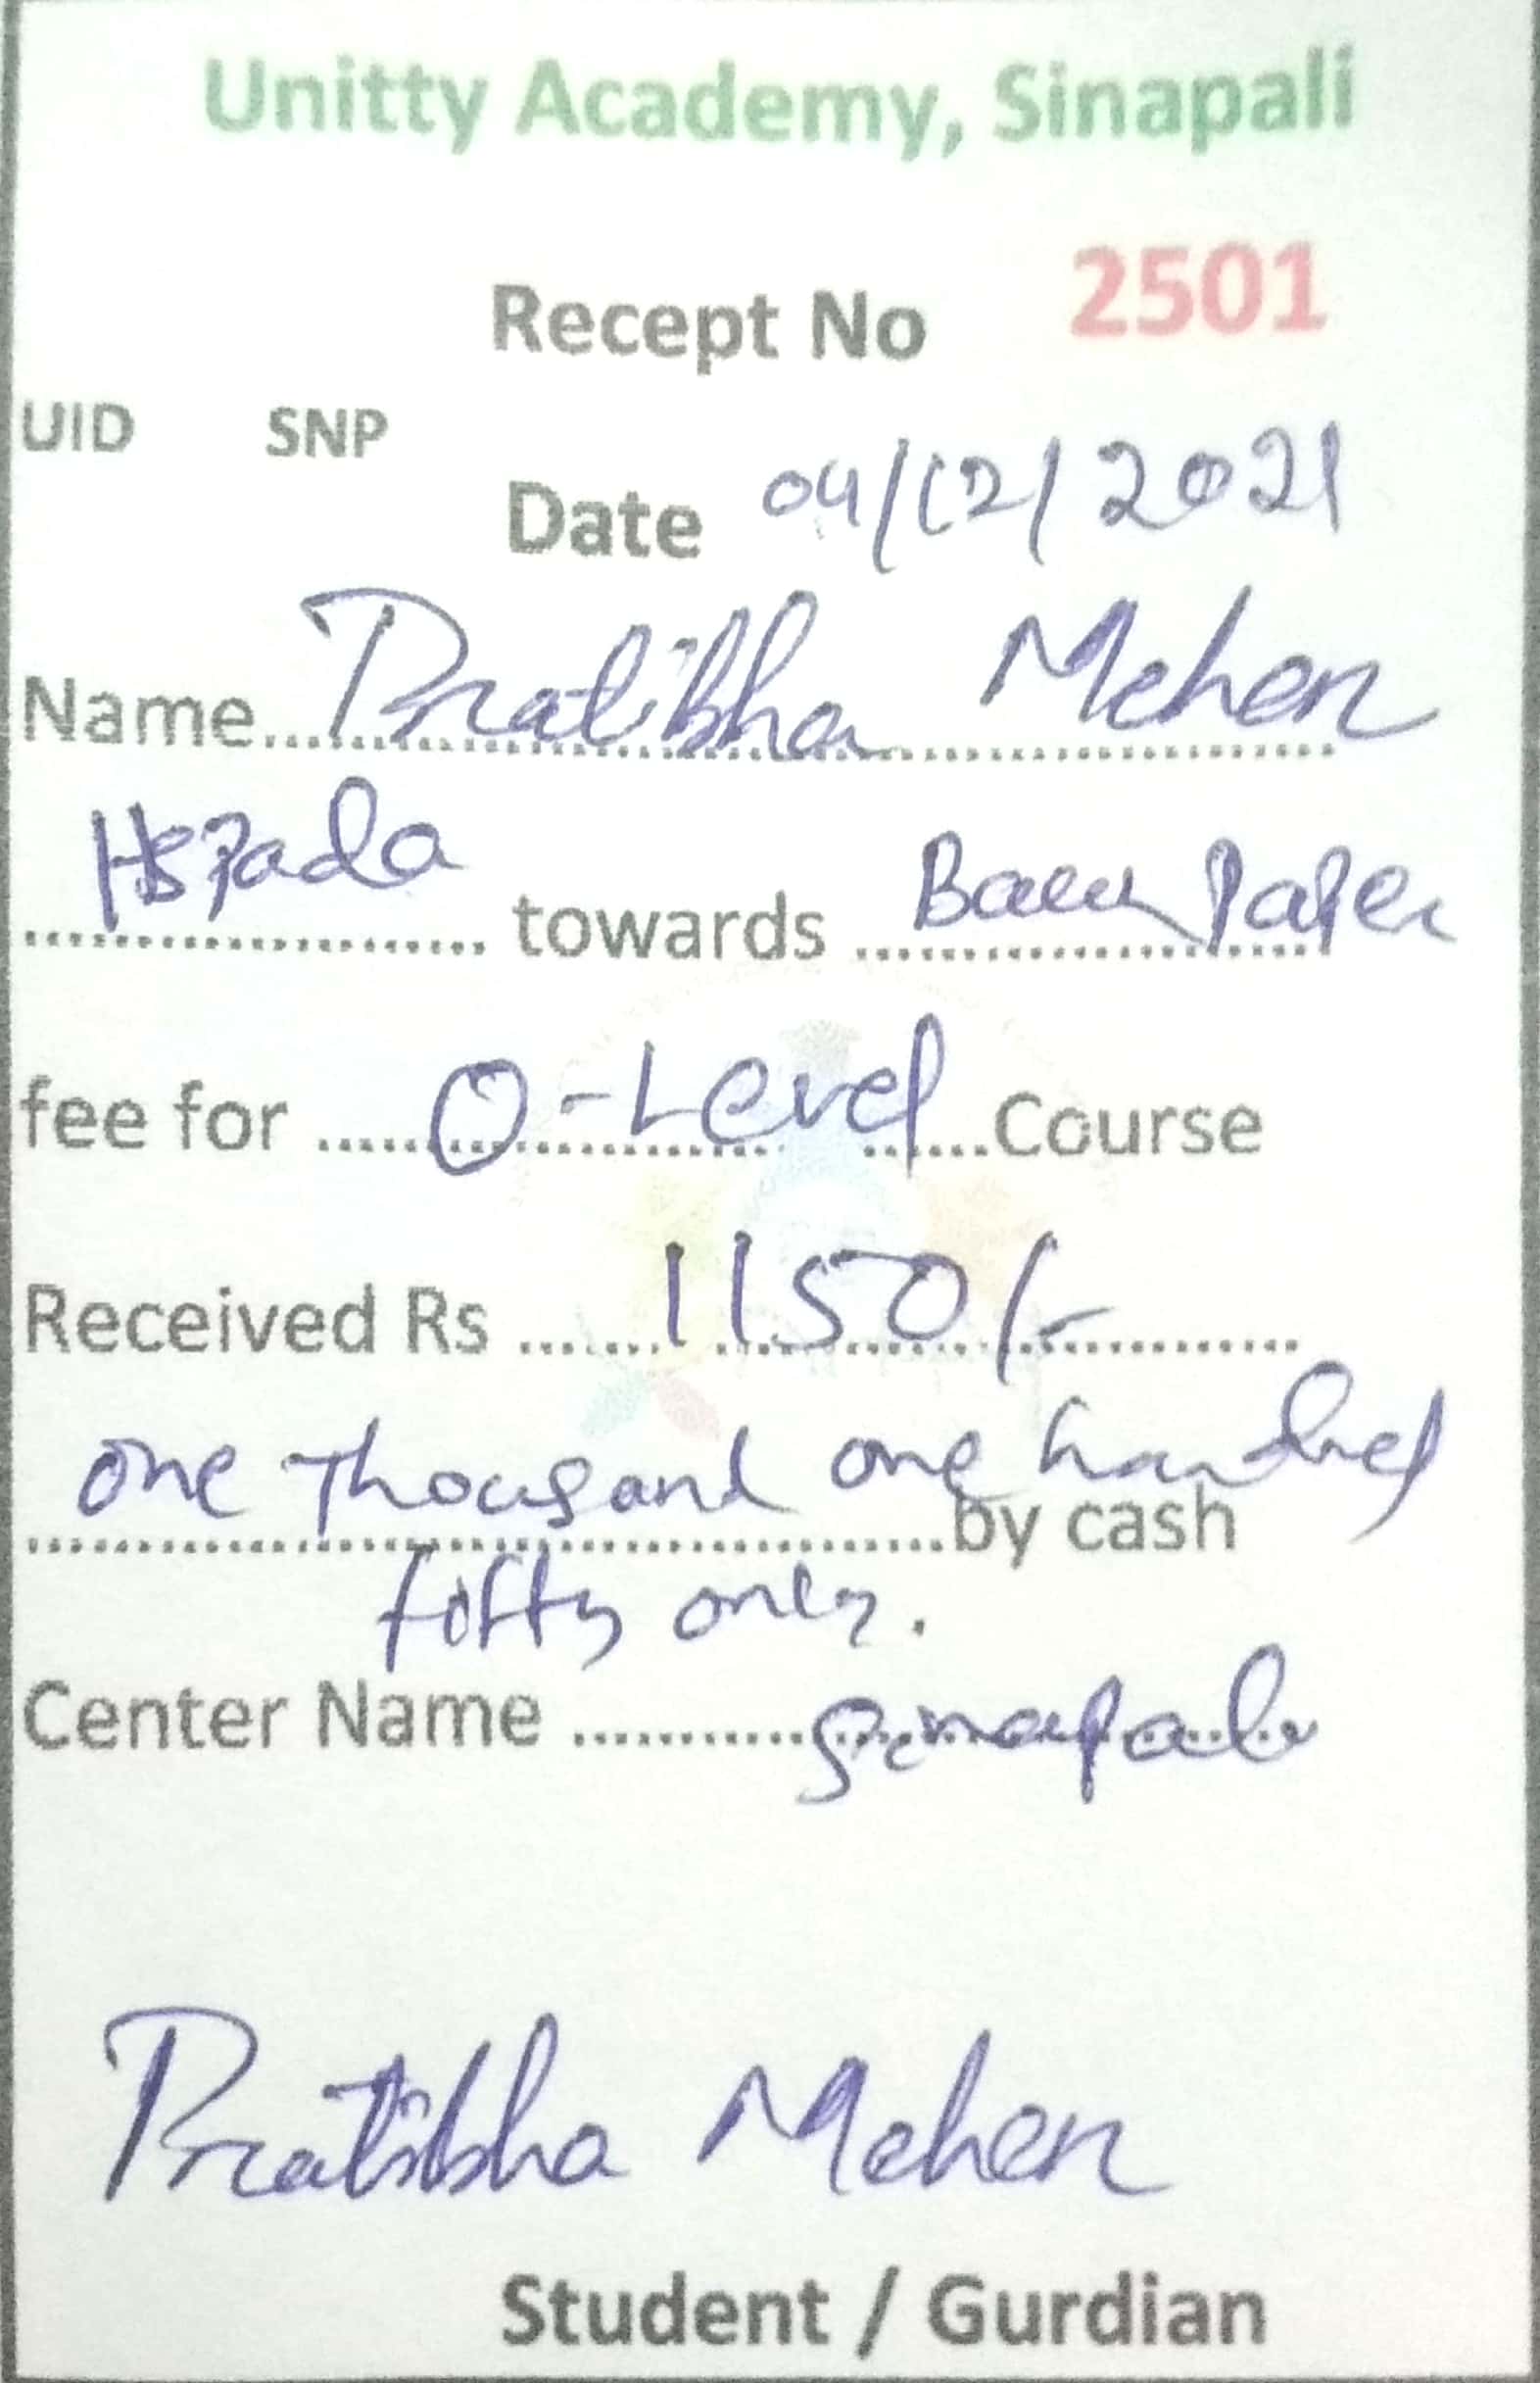 Unitty Academy, Sinapali
Recept No 2501
UID SNP
Date 04/12/2021
Name Pratibha Meher
HSPada towards Back Paper
fee for O-Level Course
Received Rs 1150/-
one thousand one hundred
by cash
fifty only.
Center Name Sinapali
Pratibha Meher
Student / Gurdian